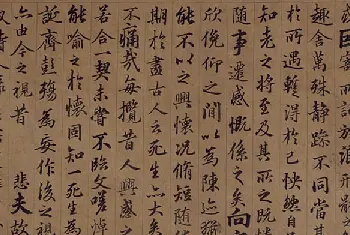 放浪形骸
趣舍萬殊静躁不同當其
於所遇暫得於己怏然自
知老之將至及其所之既惓
隨事遷感慨係之矣向
欣俛仰之間以為陳迹猶
能不以之興懷况脩短随
期於盡古人云死生亦大矣
不痛哉每攬昔人興感之
若合一契未嘗不臨文嗟悼
能喻之於懷固知一死生為
誕齊彭殤為妄作後之視
亦由今之視昔 悲夫故